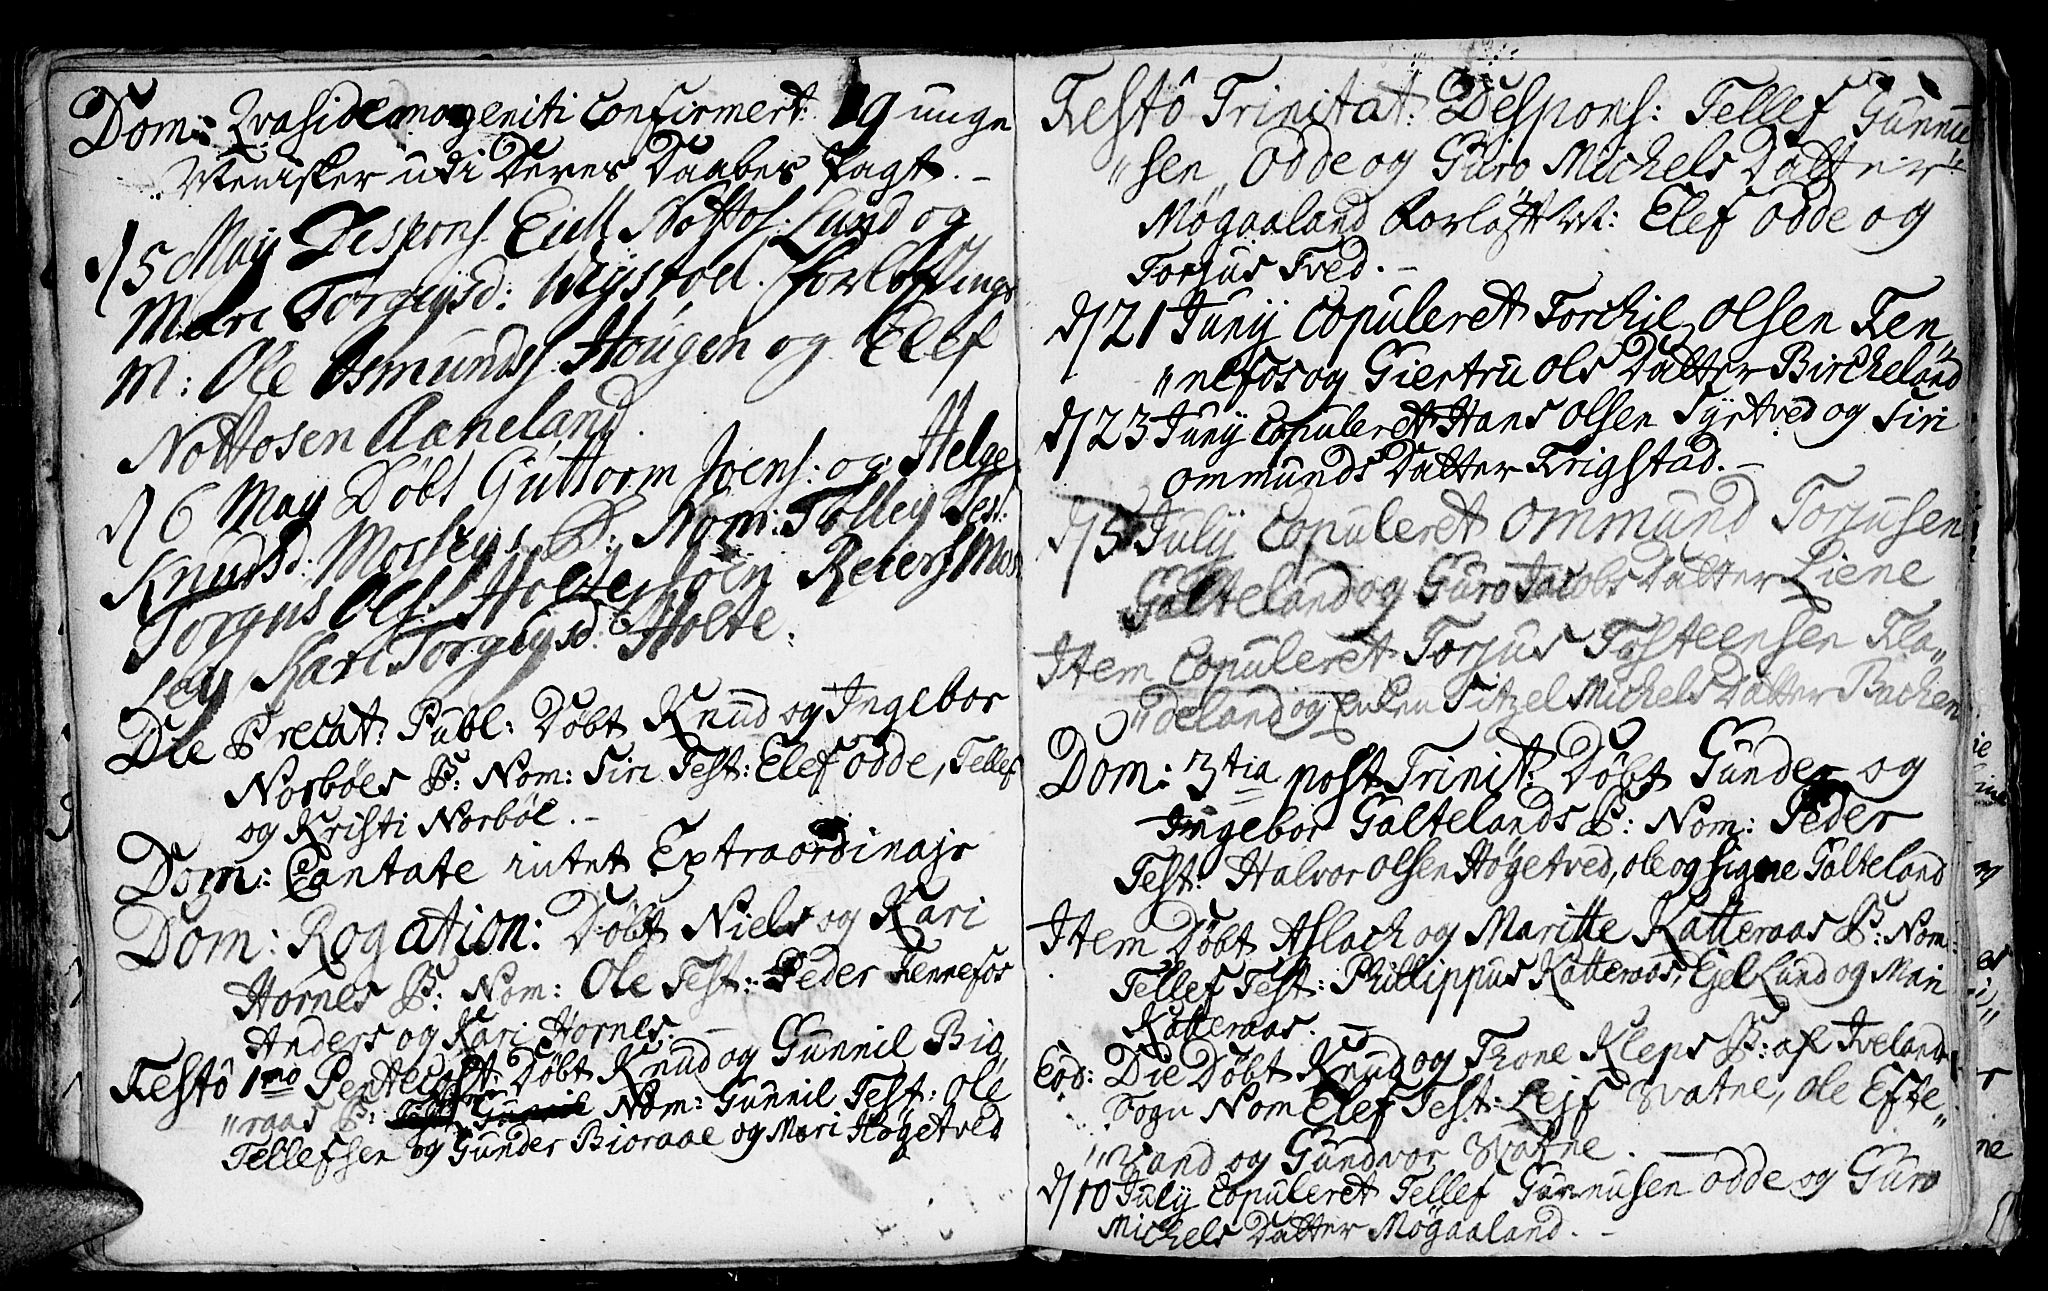 Dom: Qvasidemogeniti Confirmert: 19 unge
Menisker udi Deres Daabes Pagt. -
d/5 May Despons. Eiell Nottos: Lund og
Mari Torgiysd: Forlofnings
M: Ole Osmunds. Hougen og Elef
Nottosen Aaneland.
d/6 May Døbt Guttorm Joens: og Helge
Knudsd: Mosseys B: Nom: Tolley Test:
Torgus Ols: Holte, Joen Reiers Mos
sey, Kari Torgiysd: Holte.
Die Precat: Publ: Døbt Knud og Ingebor
Norbøes B: Nom: Siri Test: Elef Odde, Tellef
og Kristi Norbøl. -
Dom: Cantate intet Extraordinair
Dom: Rogation: Døbt Niels og Kari
Hornes B: Nom: Ole Test: Peder Fennefos
Anders og Kari Hornes. -
Festô 1mo Pentecost: Døbt Knud og Gunnil Bio,,
,,raas B: Nom: Gunnil Test: Ole
Tellefsen og Gunder Bioraae og Mari Høgetved
Festô Trinitat: Despons: Tellef Gunnu
,,sen Odde og Guro Michels Datter
Møgaaland Forlôft M: Elef Odde og
Torjus Tved. -
d/21 Junij Copuleret Torchil Olsen Fen,,
,,nefos og Giertru Ols Datter Bircheland
d/23 Junij Copuleret Hans Olsen Syrtved og Siri
Ommunds Datter Frigstad. -
d/5 Julij Copuleret Ommund Torjusen
Galteland og Guro Jacobs Datter Liene
Item Copuleret Torjus Tosteensen Fla,,
,,deland og Enken Sitzel Michels Datter Bachen
Dom: 3tia post Trinit: Døbt Gunder og
Ingebor Galtelands B: Nom: Peder
Test: Halvor Olsen Høgetved, Ole og Signe Galteland
Item Døbt Aslach og Maritte Katteraas B: Nom:
Tellef Test: Phillippus Katteraas, Ejel Lund og Mari
Katteraas. -
Eod: Die Døbt Knud og Thone Kleps B: af Iveland
Sogn Nom Elef Test: Lejf Vatne, Ole Efte,,
,,Land og Gundvor Vatne.
d/10 Julij Copuleret Tellef Gunnusen Odde og Guro
Michels Datter Møgaaland. -